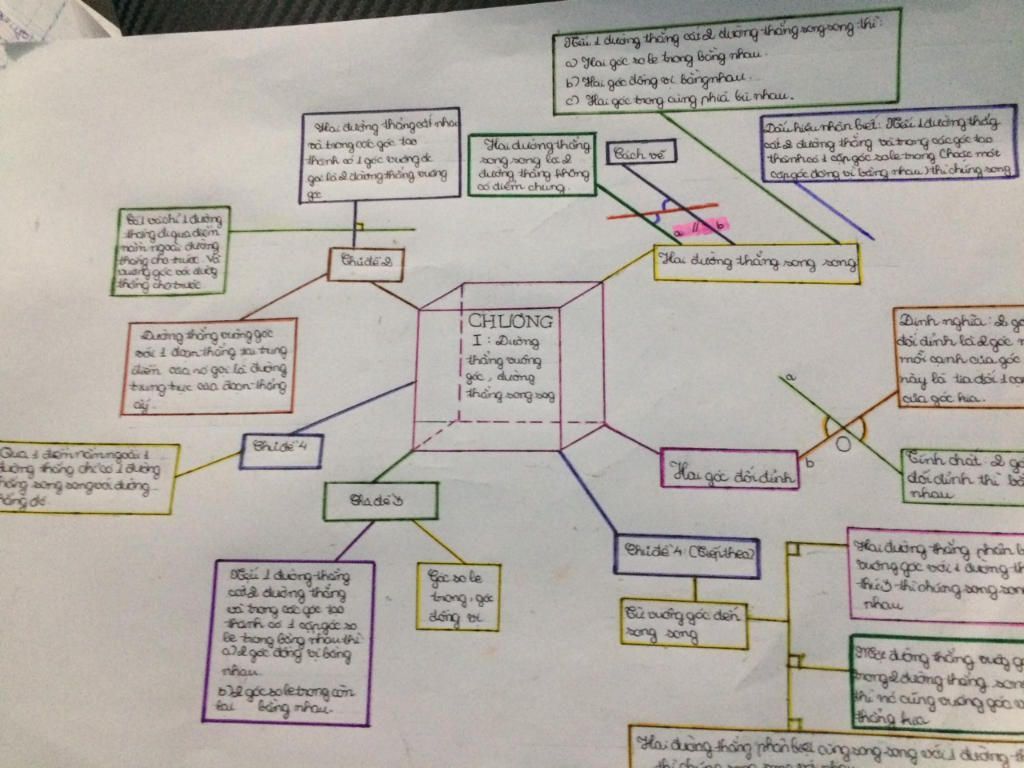 Nếu 1 đường thẳng cắt 2 đường thẳng song song thì:
a) Hai góc so le trong bằng nhau.
b) Hai góc đồng vị bằng nhau.
c) Hai góc trong cùng phía bù nhau.
Hai đường thẳng cắt nhau
và trong các góc tạo
thành có 1 góc vuông đc
gọi là 2 đường thẳng vuông
góc
Hai đường thẳng
song song là 2
đường thẳng không
có điểm chung.
Cách vẽ
Dấu hiệu nhận biết: Nếu 1 đường thẳng
cắt 2 đường thẳng và trong các góc tạo
thành có 1 cặp góc so le trong (hoặc một
cặp góc đồng vị bằng nhau) thì chúng song
Có 1 và chỉ 1 đường
thẳng đi qua điểm
nằm ngoài đường
thẳng cho trước. Và
vuông góc với đường
thẳng cho trước
Chủ đề 2
a // b
Hai đường thẳng song song
CHƯƠNG
I: Đường
thẳng vuông
góc, đường
thẳng song sog
Đường thẳng vuông góc
với 1 đoạn thẳng tại trung
điểm của nó gọi là đường
trung trực của đoạn thẳng
ấy.
Định nghĩa: 2 gó
đối đỉnh là 2 góc m
mỗi cạnh của góc
này là tia đối 1 cạ
của góc kia.
a
O
b
Chủ đề 4
Qua 1 điểm nằm ngoài 1
đường thẳng chỉ có 1 đường
thẳng song song với đường
thẳng đó
Hai góc đối đỉnh
Tính chất: 2 gó
đối đỉnh thì bằ
nhau
Chủ đề 3
Chủ đề 4 (Tiếp theo)
Nếu 1 đường thẳng
cắt 2 đường thẳng
và trong các góc tạo
thành có 1 cặp góc so
le trong bằng nhau thì
a) 2 góc đồng vị bằng
nhau.
b) 2 góc so le trong còn
lại bằng nhau.
Góc so le
trong, góc
đồng vị
Từ vuông góc đến
song song
Hai đường thẳng phân bi
vuông góc với 1 đường th
thứ 3 thì chúng song son
nhau
Một đường thẳng vuông g
trong 2 đường thẳng song
thì nó cũng vuông góc v
thẳng kia
Hai đường thẳng phân biệt cùng song song với 1 đường t